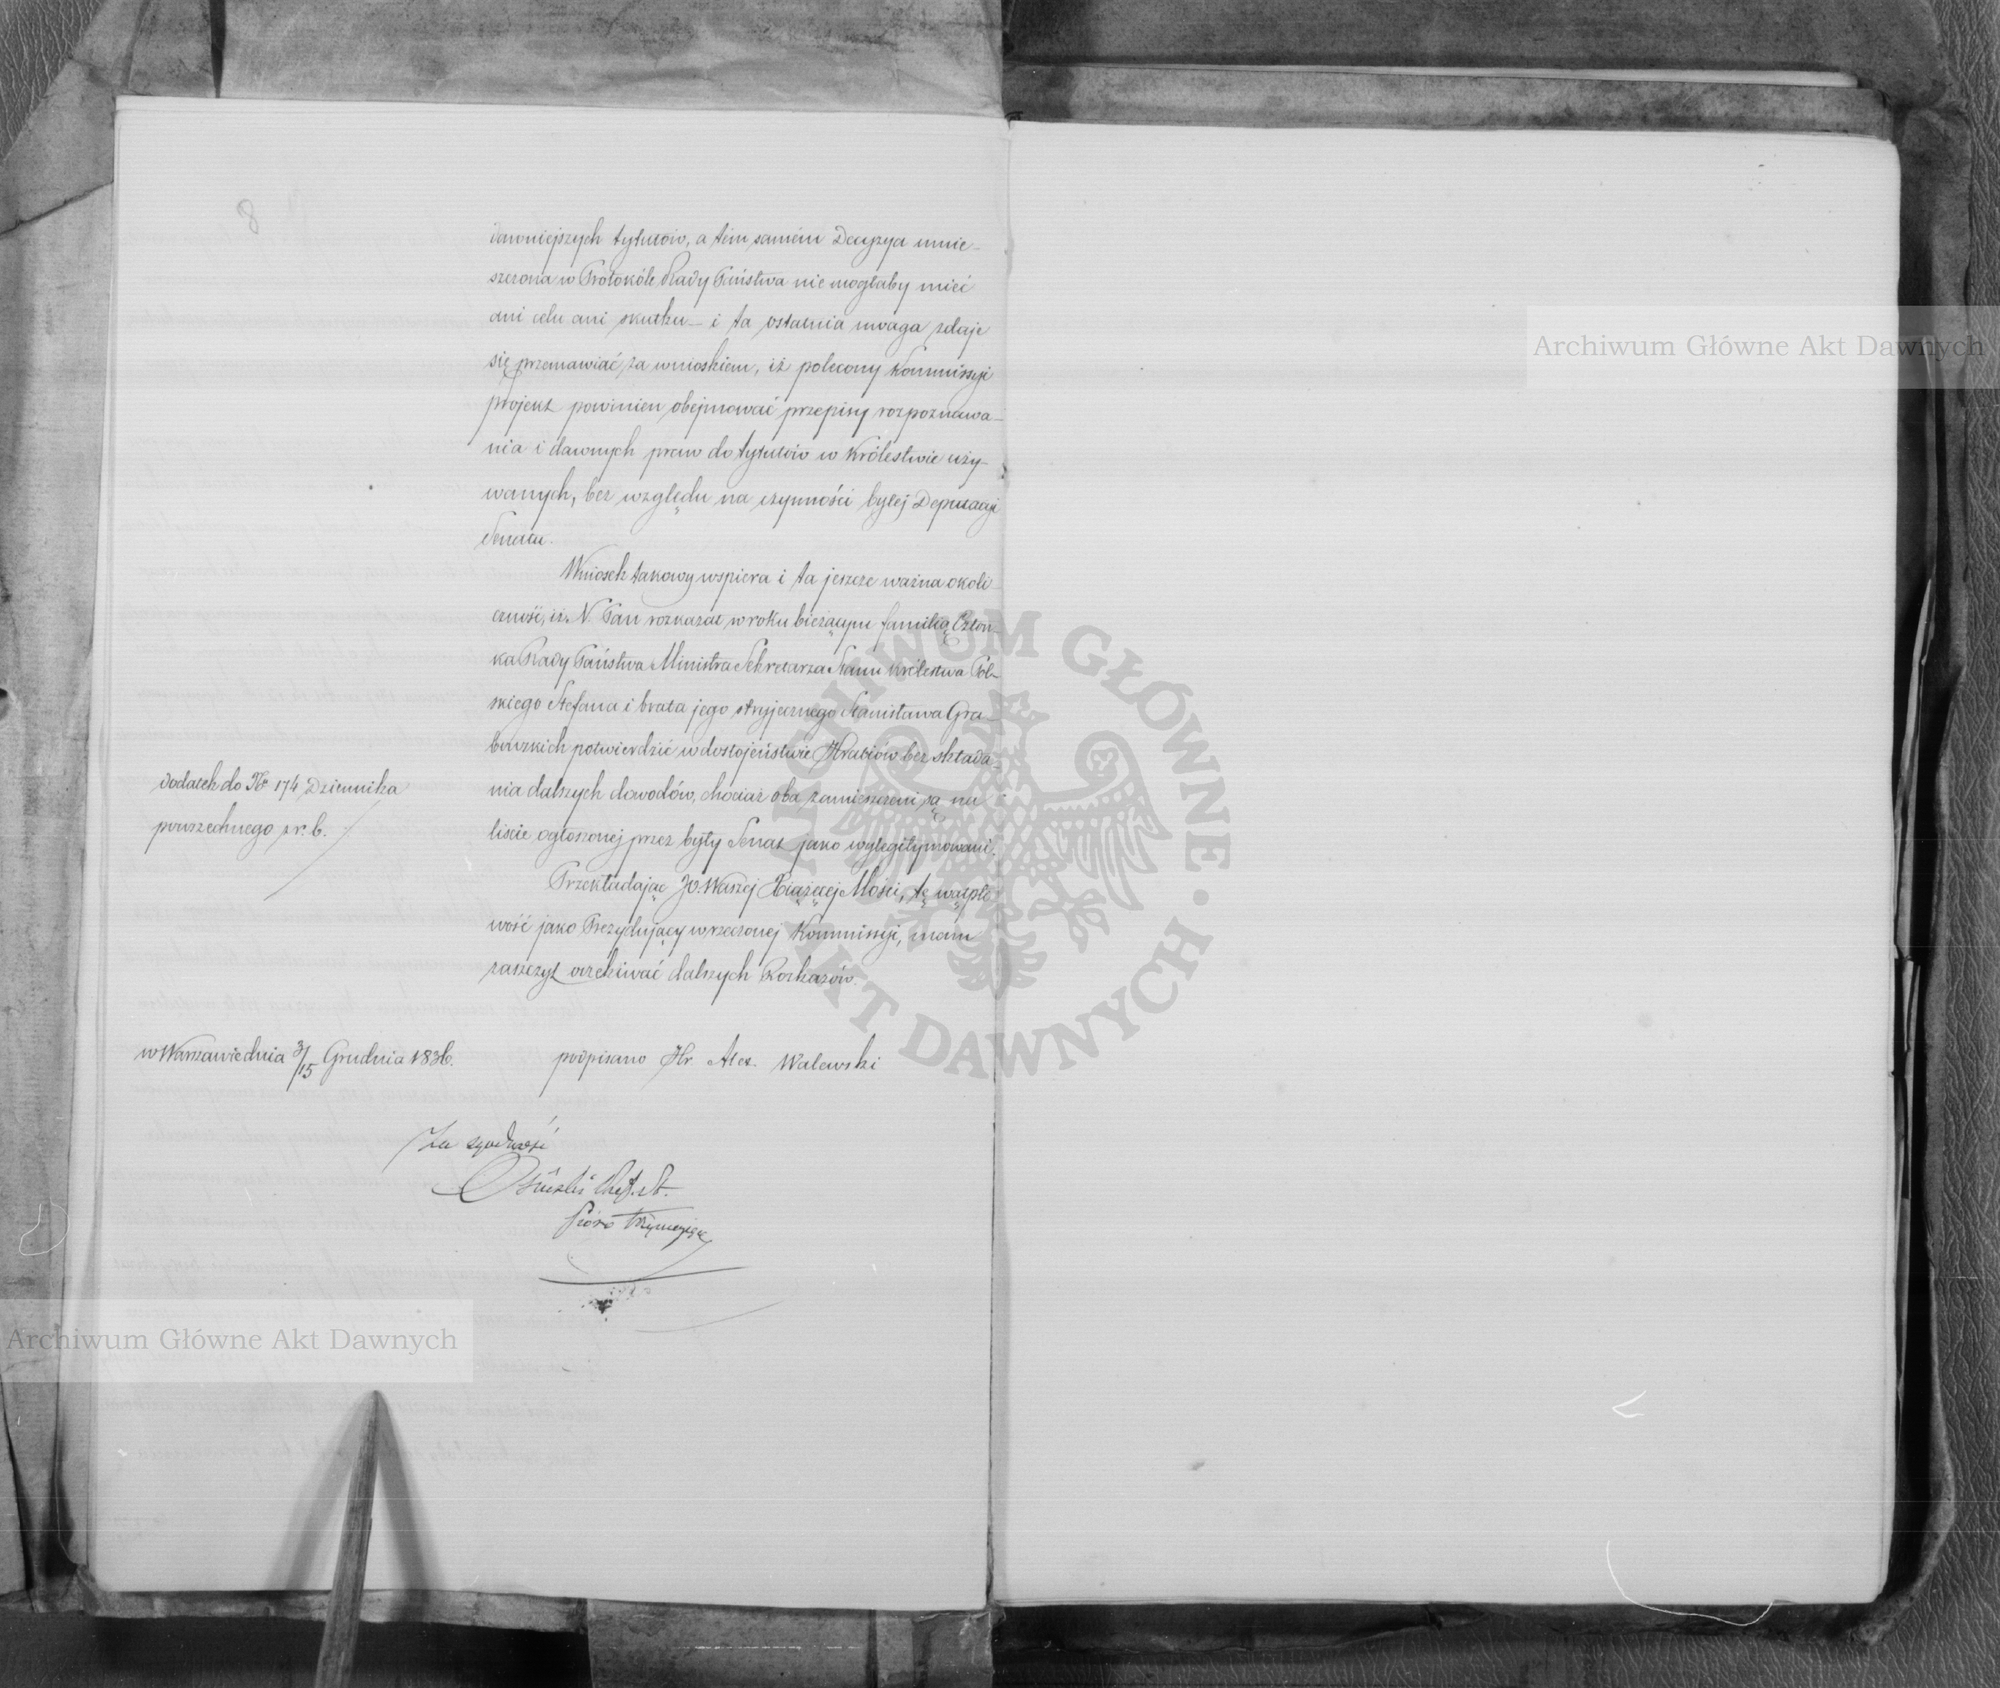 8
dawniejszych tytułów, a tém samém Decyzya umie-
szczona w Protokóle Rady Państwa nie mogłaby mieć
ani celu ani skutku – i ta ostatnia uwaga zdaje
się przemawiać za wnioskiem, iż polecony Kommissyi
projekt powinien obejmować przepisy rozpoznawa-
nia i dawnych praw do tytułów w Królestwie uży-
wanych, bez względu na czynności byłej Deputacyi
Senatu.
Wniosek takowy wspiera i ta jeszcze ważna okoli-
czność, iż N. Pan rozkazał w roku bieżącym familią Człon-
ka Rady Państwa Ministra Sekretarza Stanu Królestwa Pol-
skiego Stefana i brata jego stryjecznego Stanisława Gra-
bowskich potwierdzić w dostojeństwie Hrabiów bez składa-
nia dalszych dowodów, chociaż oba zamieszczeni są na
liście ogłoszonej przez były Senat jako wylegitymowani.
dodatek do Nr 174 Dziennika
powszechnego z r. b.
Przekładając JO. Waszej Xiążęcej Mości, tę wątpli-
wość jako Prezydujący w rzeczonej Kommissyi, mam
zaszczyt oczekiwać dalszych Rozkazów.
w Warszawie dnia 3/15 Grudnia 1836.
podpisano Hr. Alex. Walewski
Za zgodność
Archiwum Główne Akt Dawnych
Archiwum Główne Akt Dawnych
ARCHIWUM GŁÓWNE AKT DAWNYCH